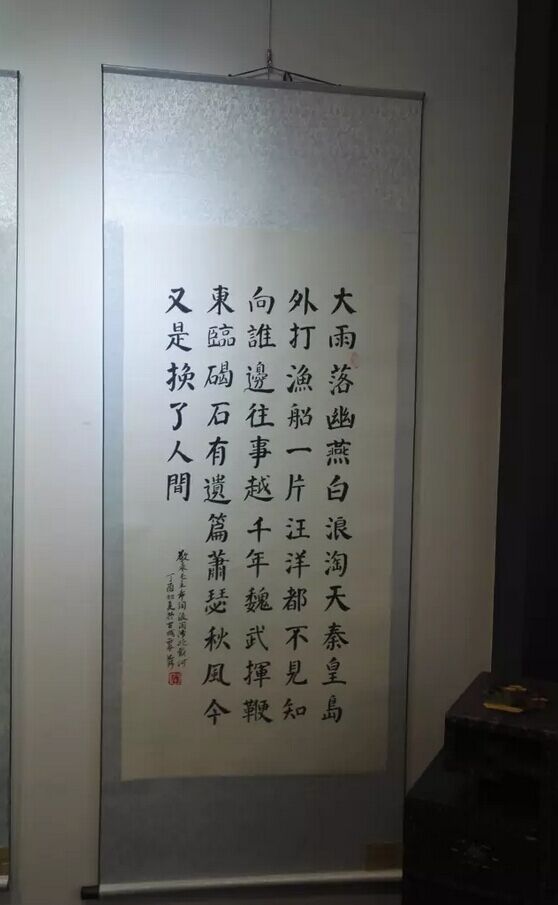 大雨落幽燕白浪淘天秦皇島
外打漁船一片汪洋都不見知
向誰邊往事越千年魏武揮鞭
東臨碣石有遺篇蕭瑟秋風今
又是換了人間
敬录毛主席词浪淘沙北戴河
丁酉初夏於古城